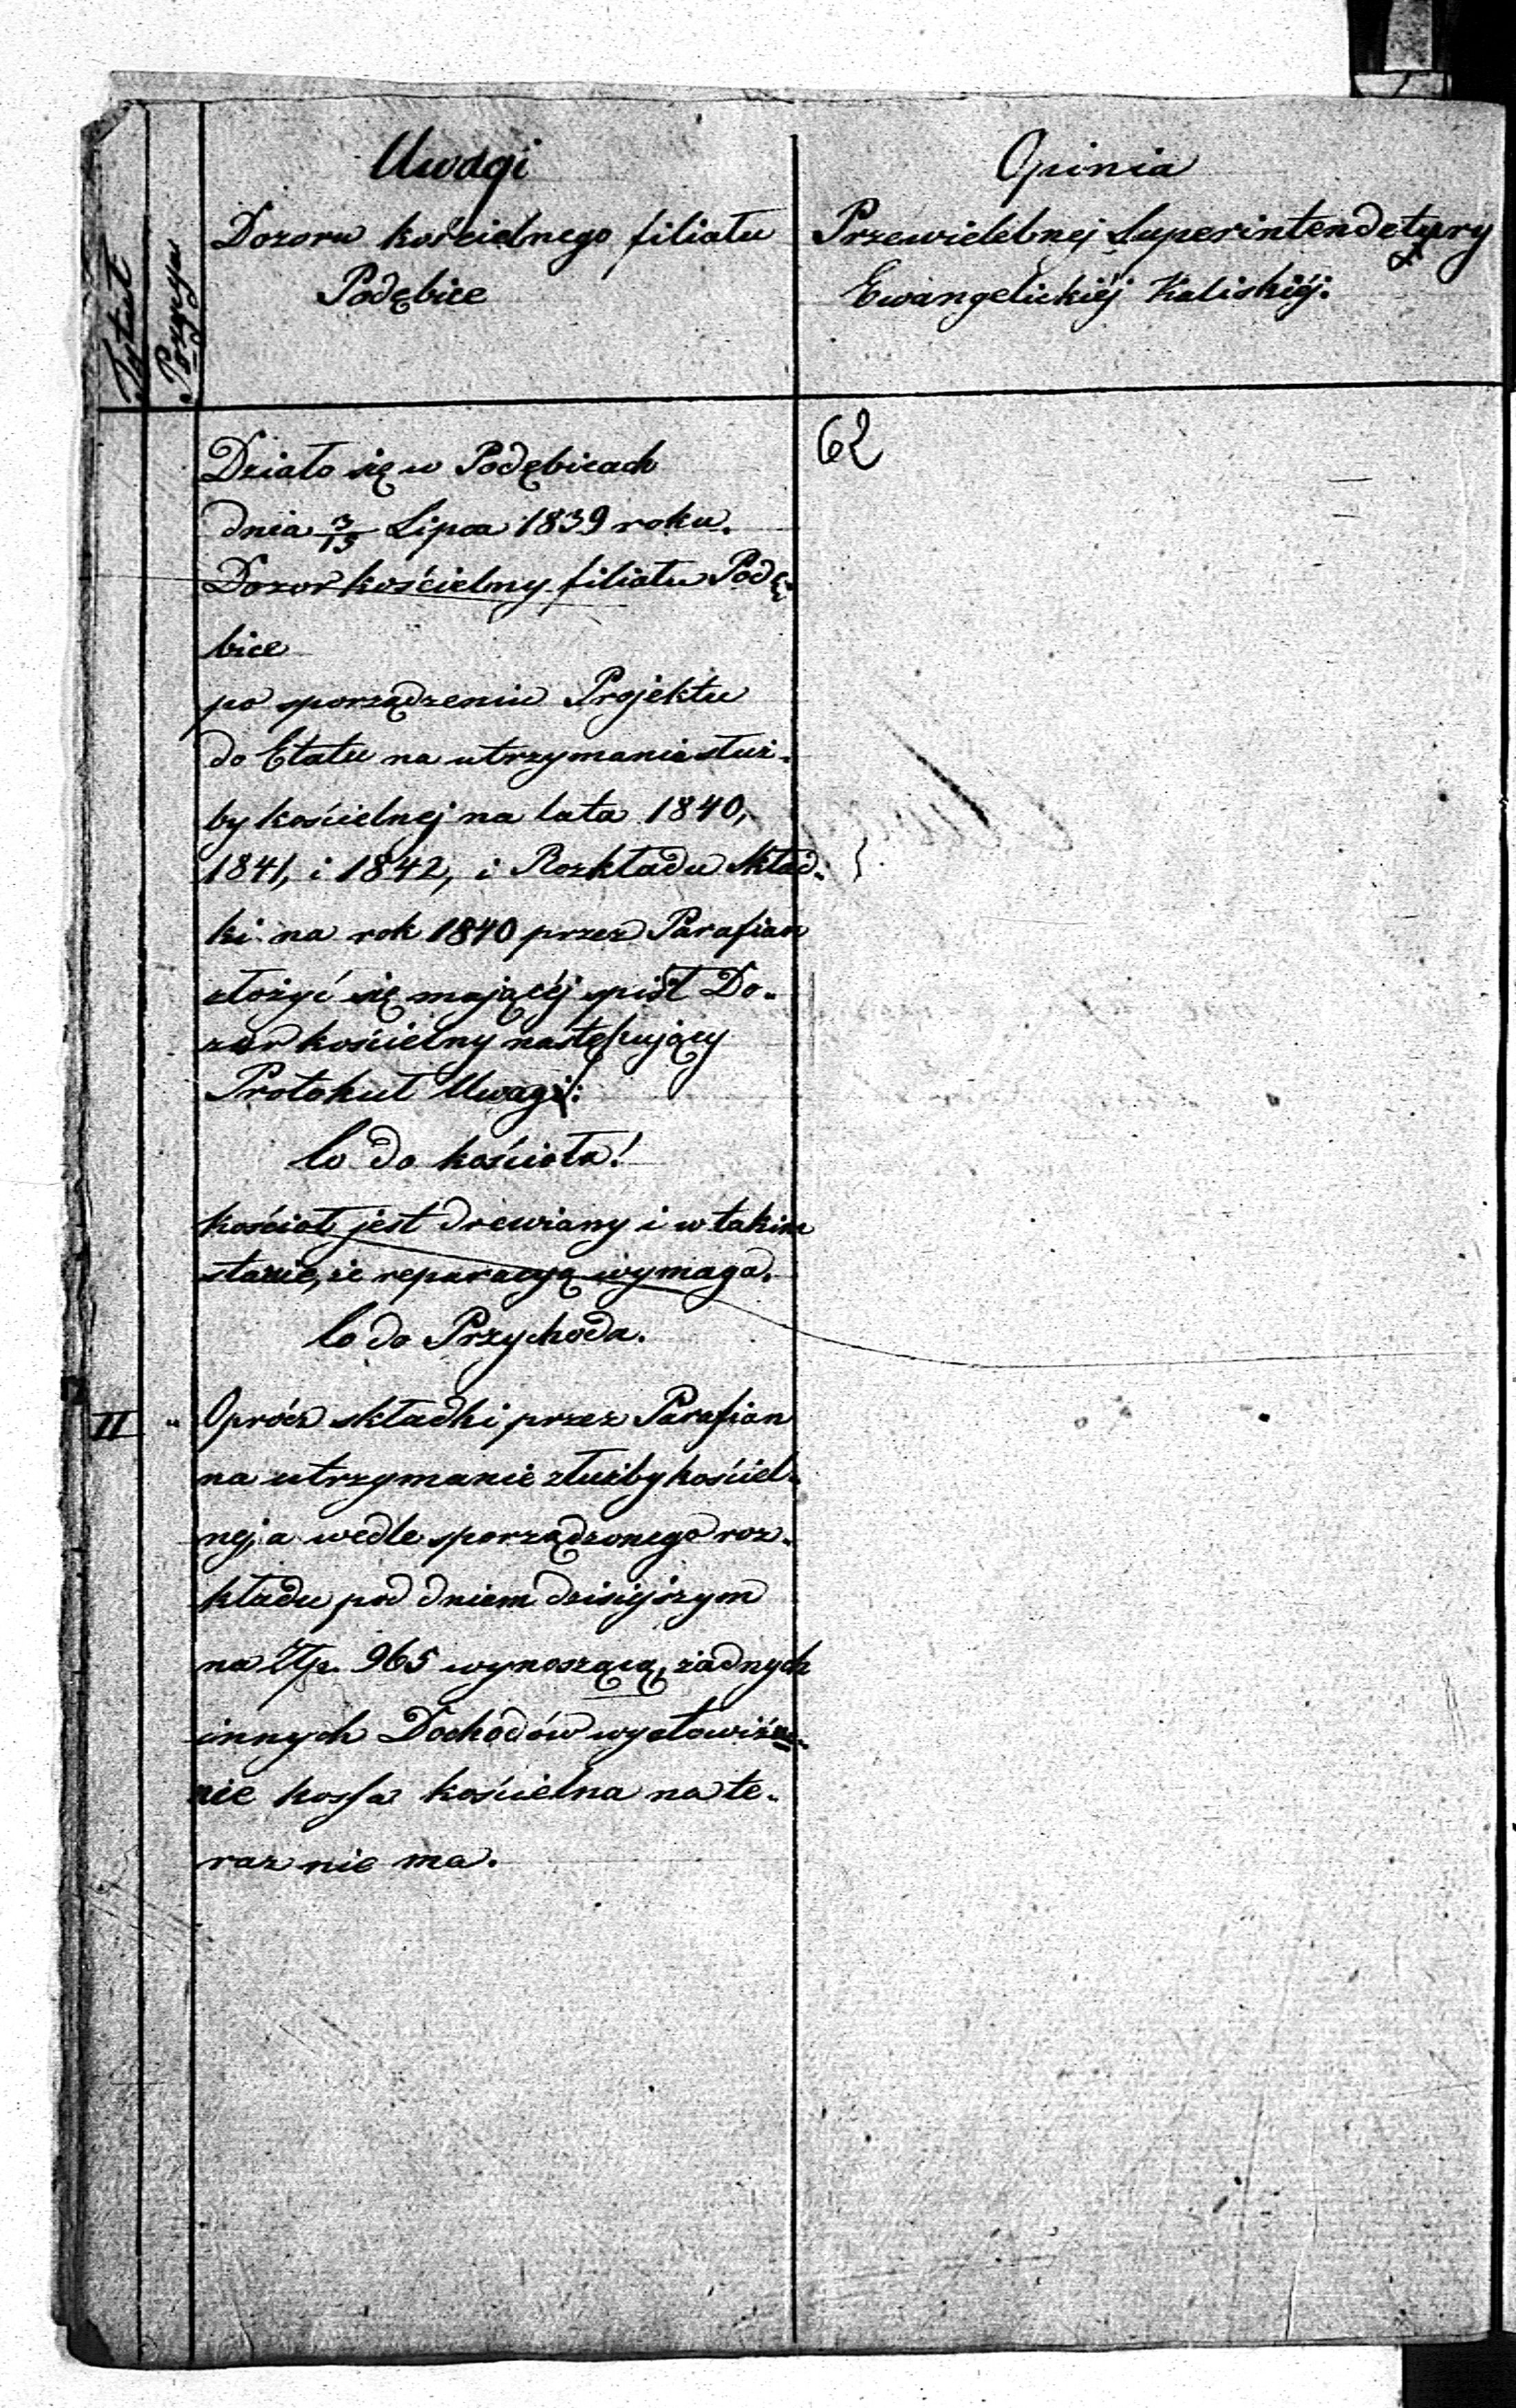 Tytuł
Pozycya
Uwagi
Dozoru kościelnego filiatu
Podębice
Opinia
Przewielebnej Superintendetury
Ewangelickiéj Kaliskiéj.
62
Działo się w Podębicach
dnia 3/15 Lipca 1839 roku.
Dozor kościelny filiatu Podę-
bice
po sporządzeniu Projektu
do Etatu na utrzymania służ-
by kościelnej na lata 1840,
1841, i 1842, i Rozkładu Skład-
ki na rok 1840 przez Parafian
złożyć się mającéj spisał Do-
zór kościelny następujący
Protokuł Uwagi:
Co do kościoła!
kościoł jest drewiany i w takim
stanie, że reparacyą wymaga.
Co do Przychoda.
II " Oprócz składki przez Parafian
na utrzymanie służby kościel-
nej, a wedle sporządzonego roz-
kładu pod dniem dzisiejszym
na Złp. 965 wynoszącą, żadnych
innych Dochodów
nie kassa kościelna na te-
raz nie ma.